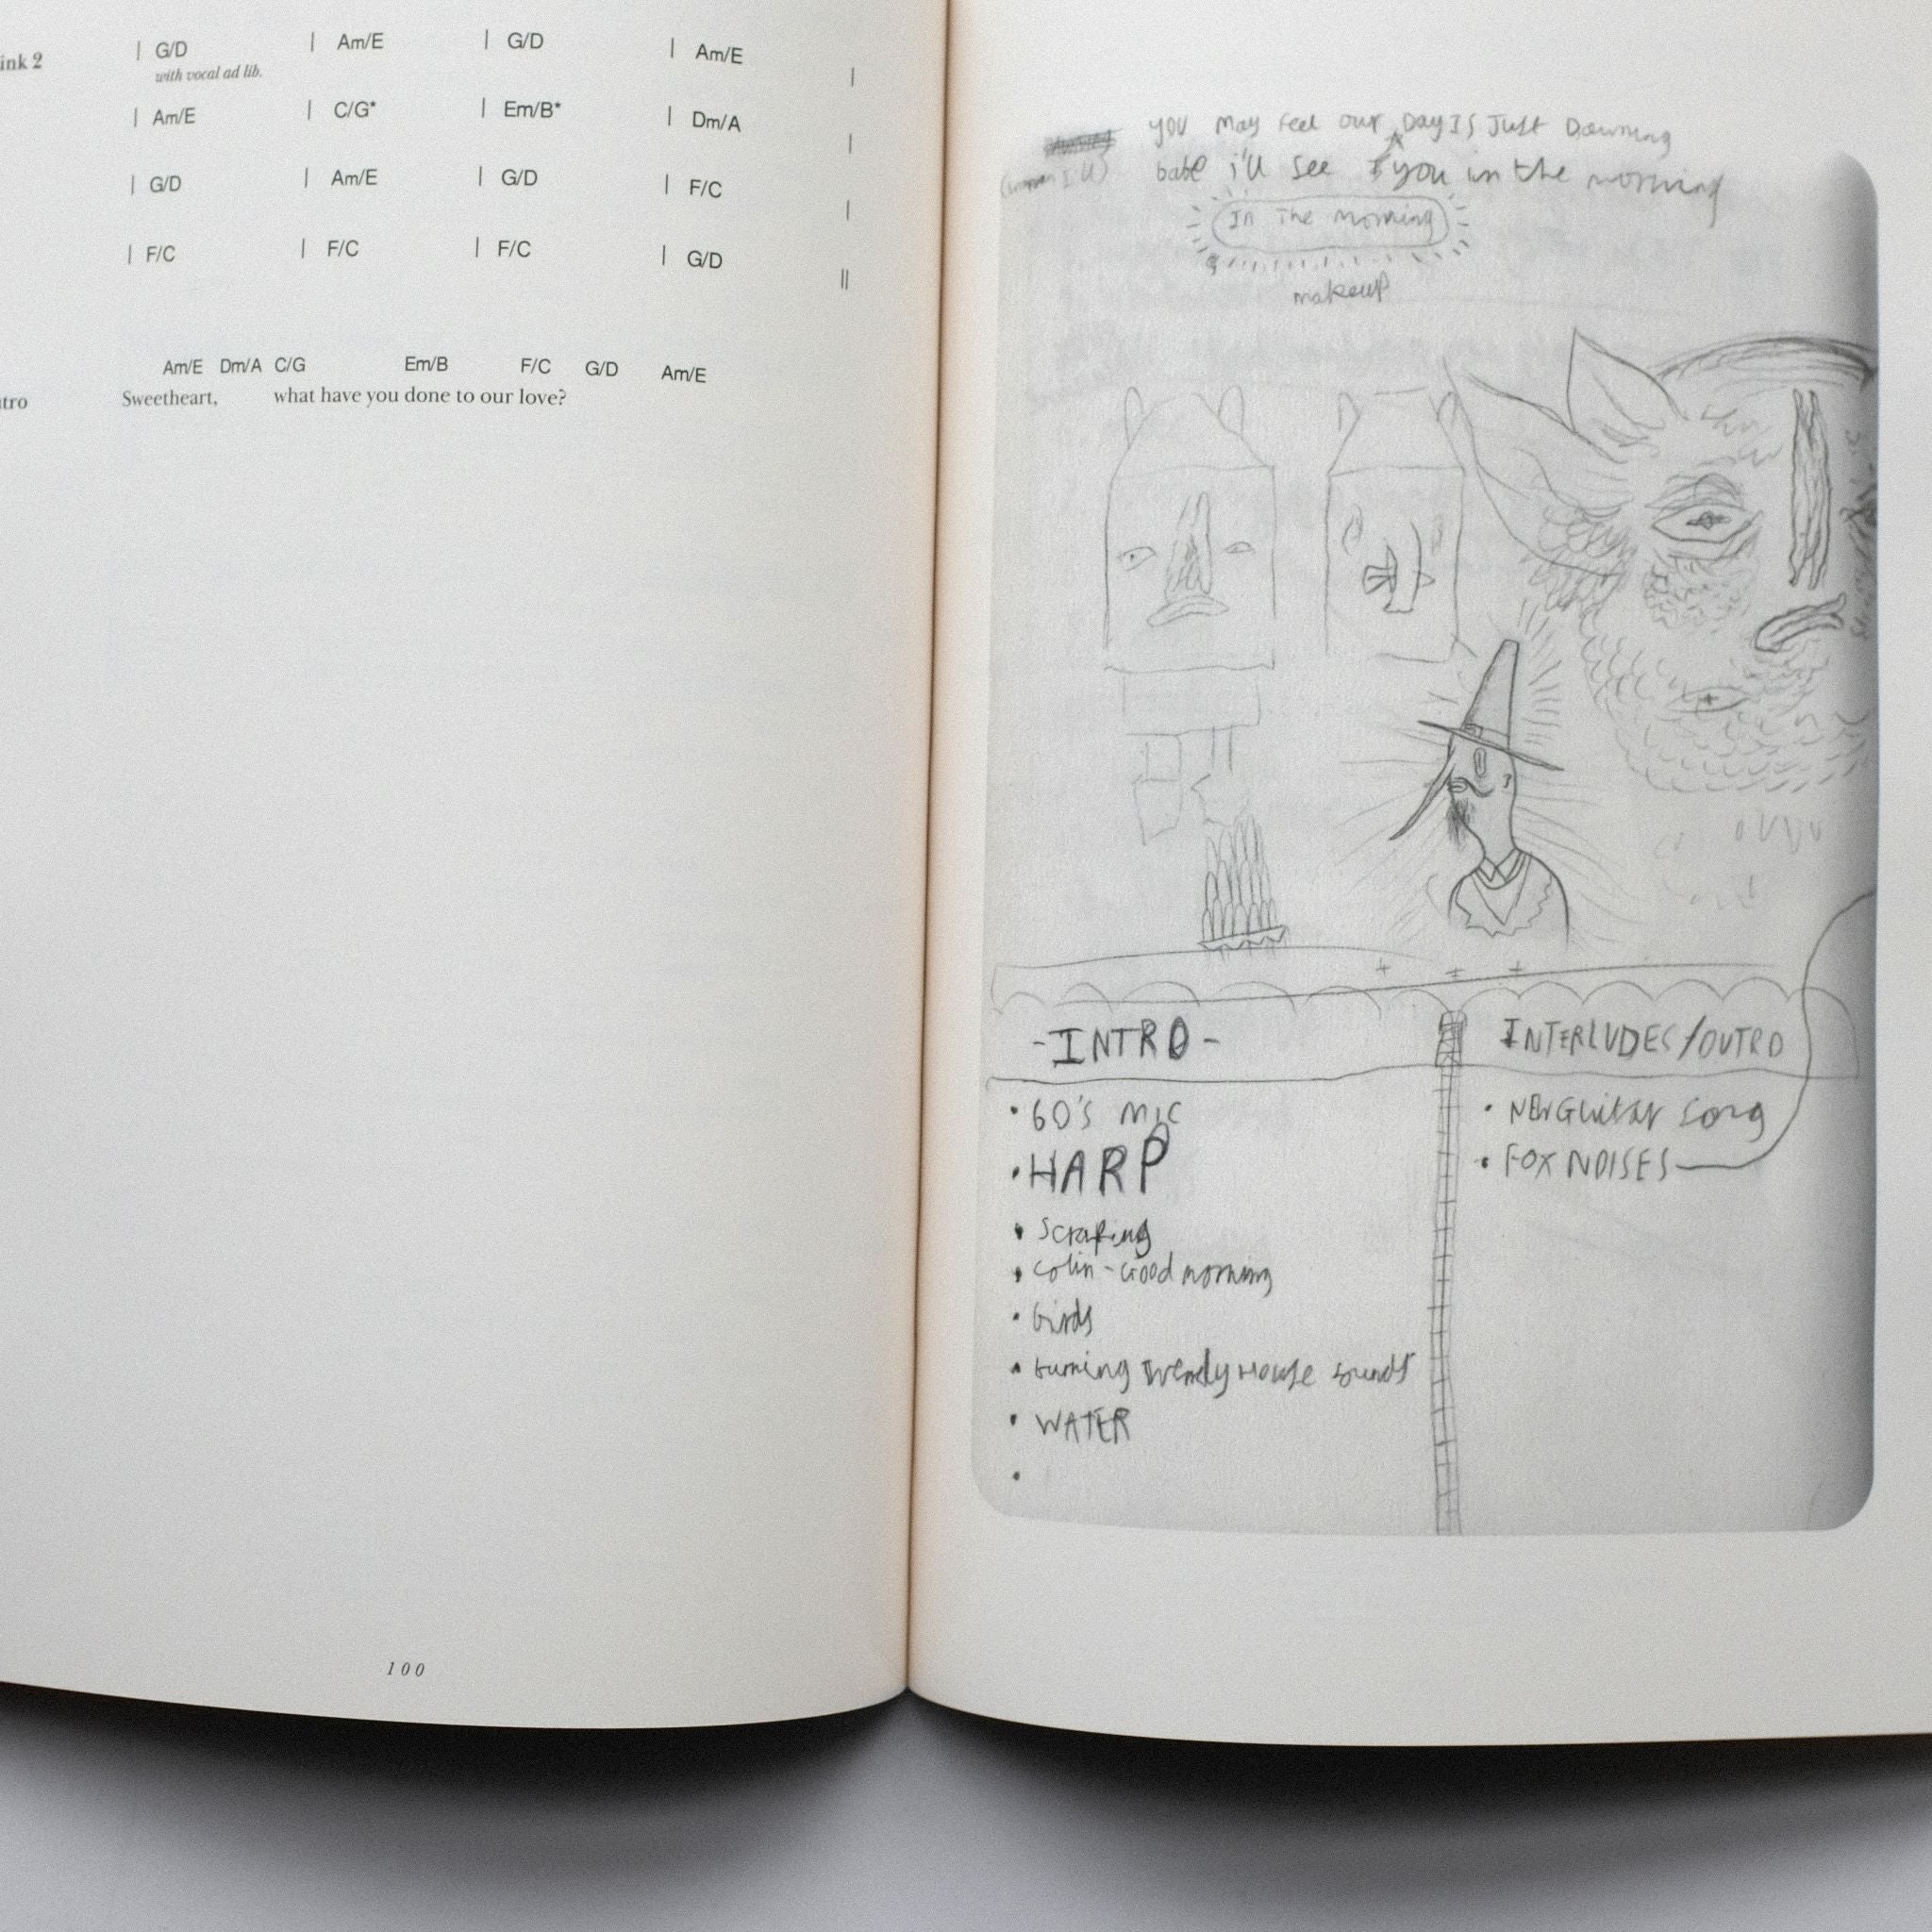 ink 2 | G/D | Am/E | G/D | Am/E |
with vocal ad lib.
| Am/E | C/G* | Em/B* | Dm/A |
| G/D | Am/E | G/D | F/C |
| F/C | F/C | F/C | G/D ||
Am/E Dm/A C/G Em/B F/C G/D Am/E
tro Sweetheart, what have you done to our love?
100
you may feel our Day Is Just Dawning
babe i'll see you in the morning
In The Morning
makeup
-INTRO-
• 60's mic
• HARP
• Scraping
• Colin - Good morning
• Birds
• turning Wendy House sounds
• WATER
•
INTERLUDES/OUTRO
• NEW Guitar Song
• FOX NOISES